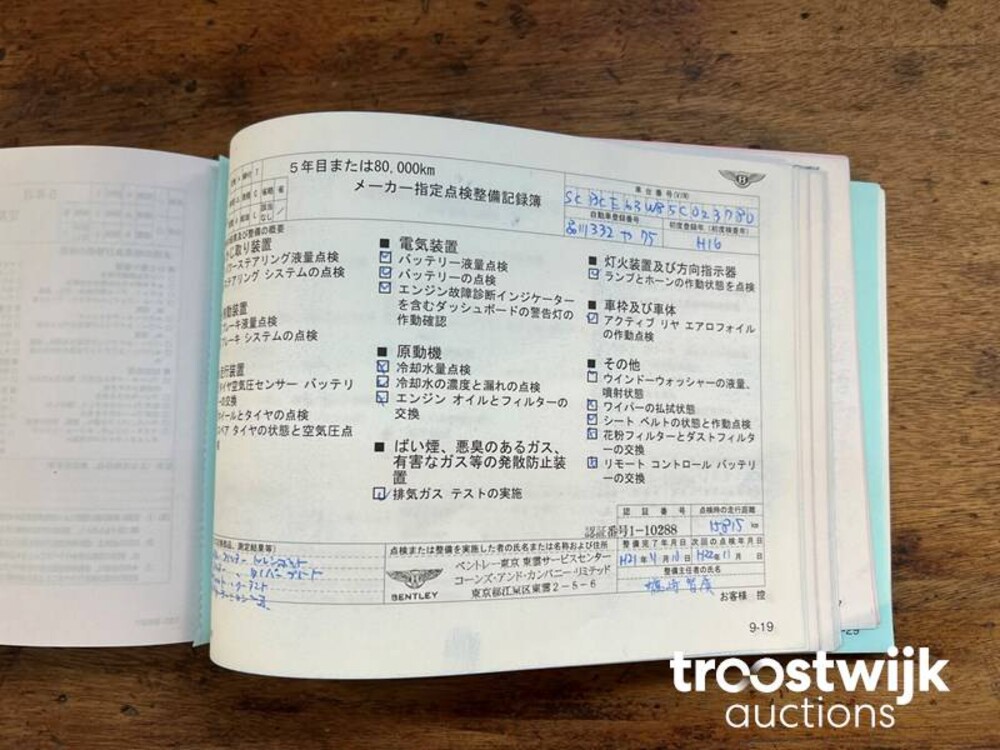 5年目または80,000km
メーカー指定点検整備記録簿
車台番号(VIN)
自動車登録番号
初度登録年(初度検査年)
品川332や75
H16
び整備の概要
じ取り装置
ワーステアリング液量点検
テアリング システムの点検
動装置
レーキ液量点検
レーキ システムの点検
走行装置
イヤ空気圧センサー バッテリ
の交換
イールとタイヤの点検
ペア タイヤの状態と空気圧点
■ 電気装置
バッテリー液量点検
バッテリーの点検
エンジン故障診断インジケーター
を含むダッシュボードの警告灯の
作動確認
■ 原動機
冷却水量点検
冷却水の濃度と漏れの点検
エンジン オイルとフィルターの
交換
■ ばい煙、悪臭のあるガス、
有害なガス等の発散防止装
置
排気ガス テストの実施
■ 灯火装置及び方向指示器
ランプとホーンの作動状態を点検
■ 車枠及び車体
アクティブ リヤ エアロフォイル
の作動点検
■ その他
ウインドーウォッシャーの液量、
噴射状態
ワイパーの払拭状態
シート ベルトの状態と作動点検
花粉フィルターとダストフィルタ
ーの交換
リモート コントロール バッテリ
ーの交換
認証番号
点検時の走行距離
認証番号1-10288
15815 km
整備完了年月日
次回の点検年月日
H21年4月10日
H22年11月 日
整備主任者の氏名
お客様 控
測定結果等)
点検または整備を実施した者の氏名または名称および住所
BENTLEY
ベントレー東京 東雲サービスセンター
コーンズ・アンド・カンパニー・リミテッド
東京都江東区東雲2-5-6
9-19
-29
troostwijk
auctions